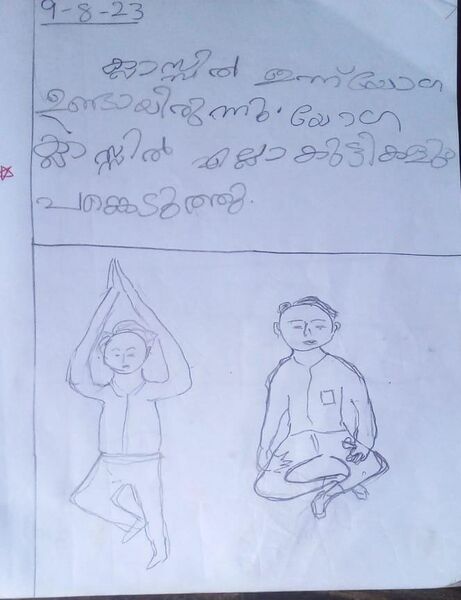 9-8-23
ക്ലാസ്സിൽ ഇന്ന് യോഗ
ഉണ്ടായിരുന്നു. യോഗ
ക്ലാസ്സിൽ എല്ലാ കുട്ടികളും
പങ്കെടുത്തു.